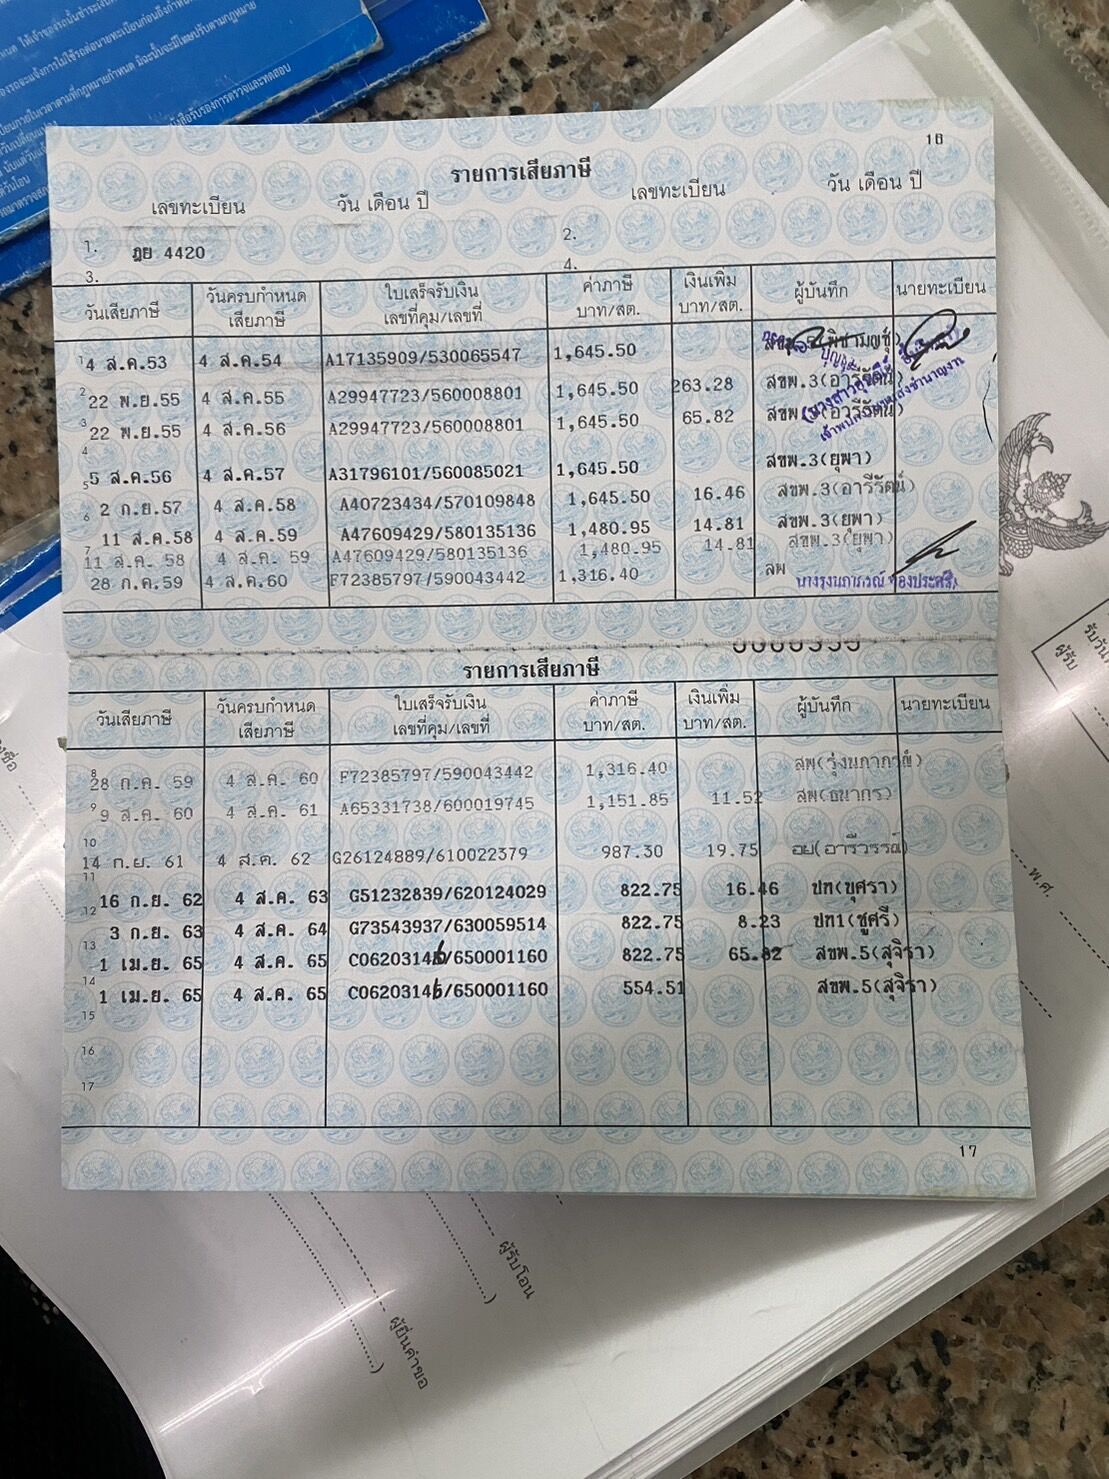 18
รายการเสียภาษี
เลขทะเบียน วัน เดือน ปี เลขทะเบียน วัน เดือน ปี
1. ฎย 4420 2.
3. 4.
วันเสียภาษี วันครบกำหนดเสียภาษี ใบเสร็จรับเงิน เลขที่คุม/เลขที่ ค่าภาษี บาท/สต. เงินเพิ่ม บาท/สต. ผู้บันทึก นายทะเบียน
1 4 ส.ค.53 4 ส.ค.54 A17135909/530065547 1,645.50
2 22 พ.ย.55 4 ส.ค.55 A29947723/560008801 1,645.50 263.28 สขพ.3(อารีรัตน์)
3 22 พ.ย.55 4 ส.ค.56 A29947723/560008801 1,645.50 65.82 สขพ (อารีรัตน์)
4
5 5 ส.ค.56 4 ส.ค.57 A31796101/560085021 1,645.50 สขพ.3(ยุพา)
6 2 ก.ย.57 4 ส.ค.58 A40723434/570109848 1,645.50 16.46 สขพ.3(อารีรัตน์)
11 ส.ค.58 4 ส.ค.59 A47609429/580135136 1,480.95 14.81 สขพ.3(ยุพา)
7 11 ส.ค. 58 4 ส.ค. 59 A47609429/580135136 1,480.95 14.81 สขพ.3(ยุพา)
28 ก.ค.59 4 ส.ค.60 F72385797/590043442 1,316.40 สพ
รายการเสียภาษี
วันเสียภาษี วันครบกำหนดเสียภาษี ใบเสร็จรับเงิน เลขที่คุม/เลขที่ ค่าภาษี บาท/สต. เงินเพิ่ม บาท/สต. ผู้บันทึก นายทะเบียน
8 28 ก.ค. 59 4 ส.ค. 60 F72385797/590043442 1,316.40 สพ(รุ่งนภาภรณ์)
9 9 ส.ค. 60 4 ส.ค. 61 A65331738/600019745 1,151.85 11.52 สพ(ธนากร)
10
14 ก.ย. 61 4 ส.ค. 62 G26124889/610022379 987.30 19.75 อย(อารีวรรณ์)
11
16 ก.ย. 62 4 ส.ค. 63 G51232839/620124029 822.75 16.46 ปท(บุศรา)
12
3 ก.ย. 63 4 ส.ค. 64 G73543937/630059514 822.75 8.23 ปท1(ชูศรี)
13
1 เม.ย. 65 4 ส.ค. 65 C06203146/650001160 822.75 65.82 สขพ.5(สุจิรา)
14
1 เม.ย. 65 4 ส.ค. 65 C06203146/650001160 554.51 สขพ.5(สุจิรา)
15
16
17
17
พ.ศ.
ผู้รับ
ผู้รับโอน
ผู้ยื่นคำขอ